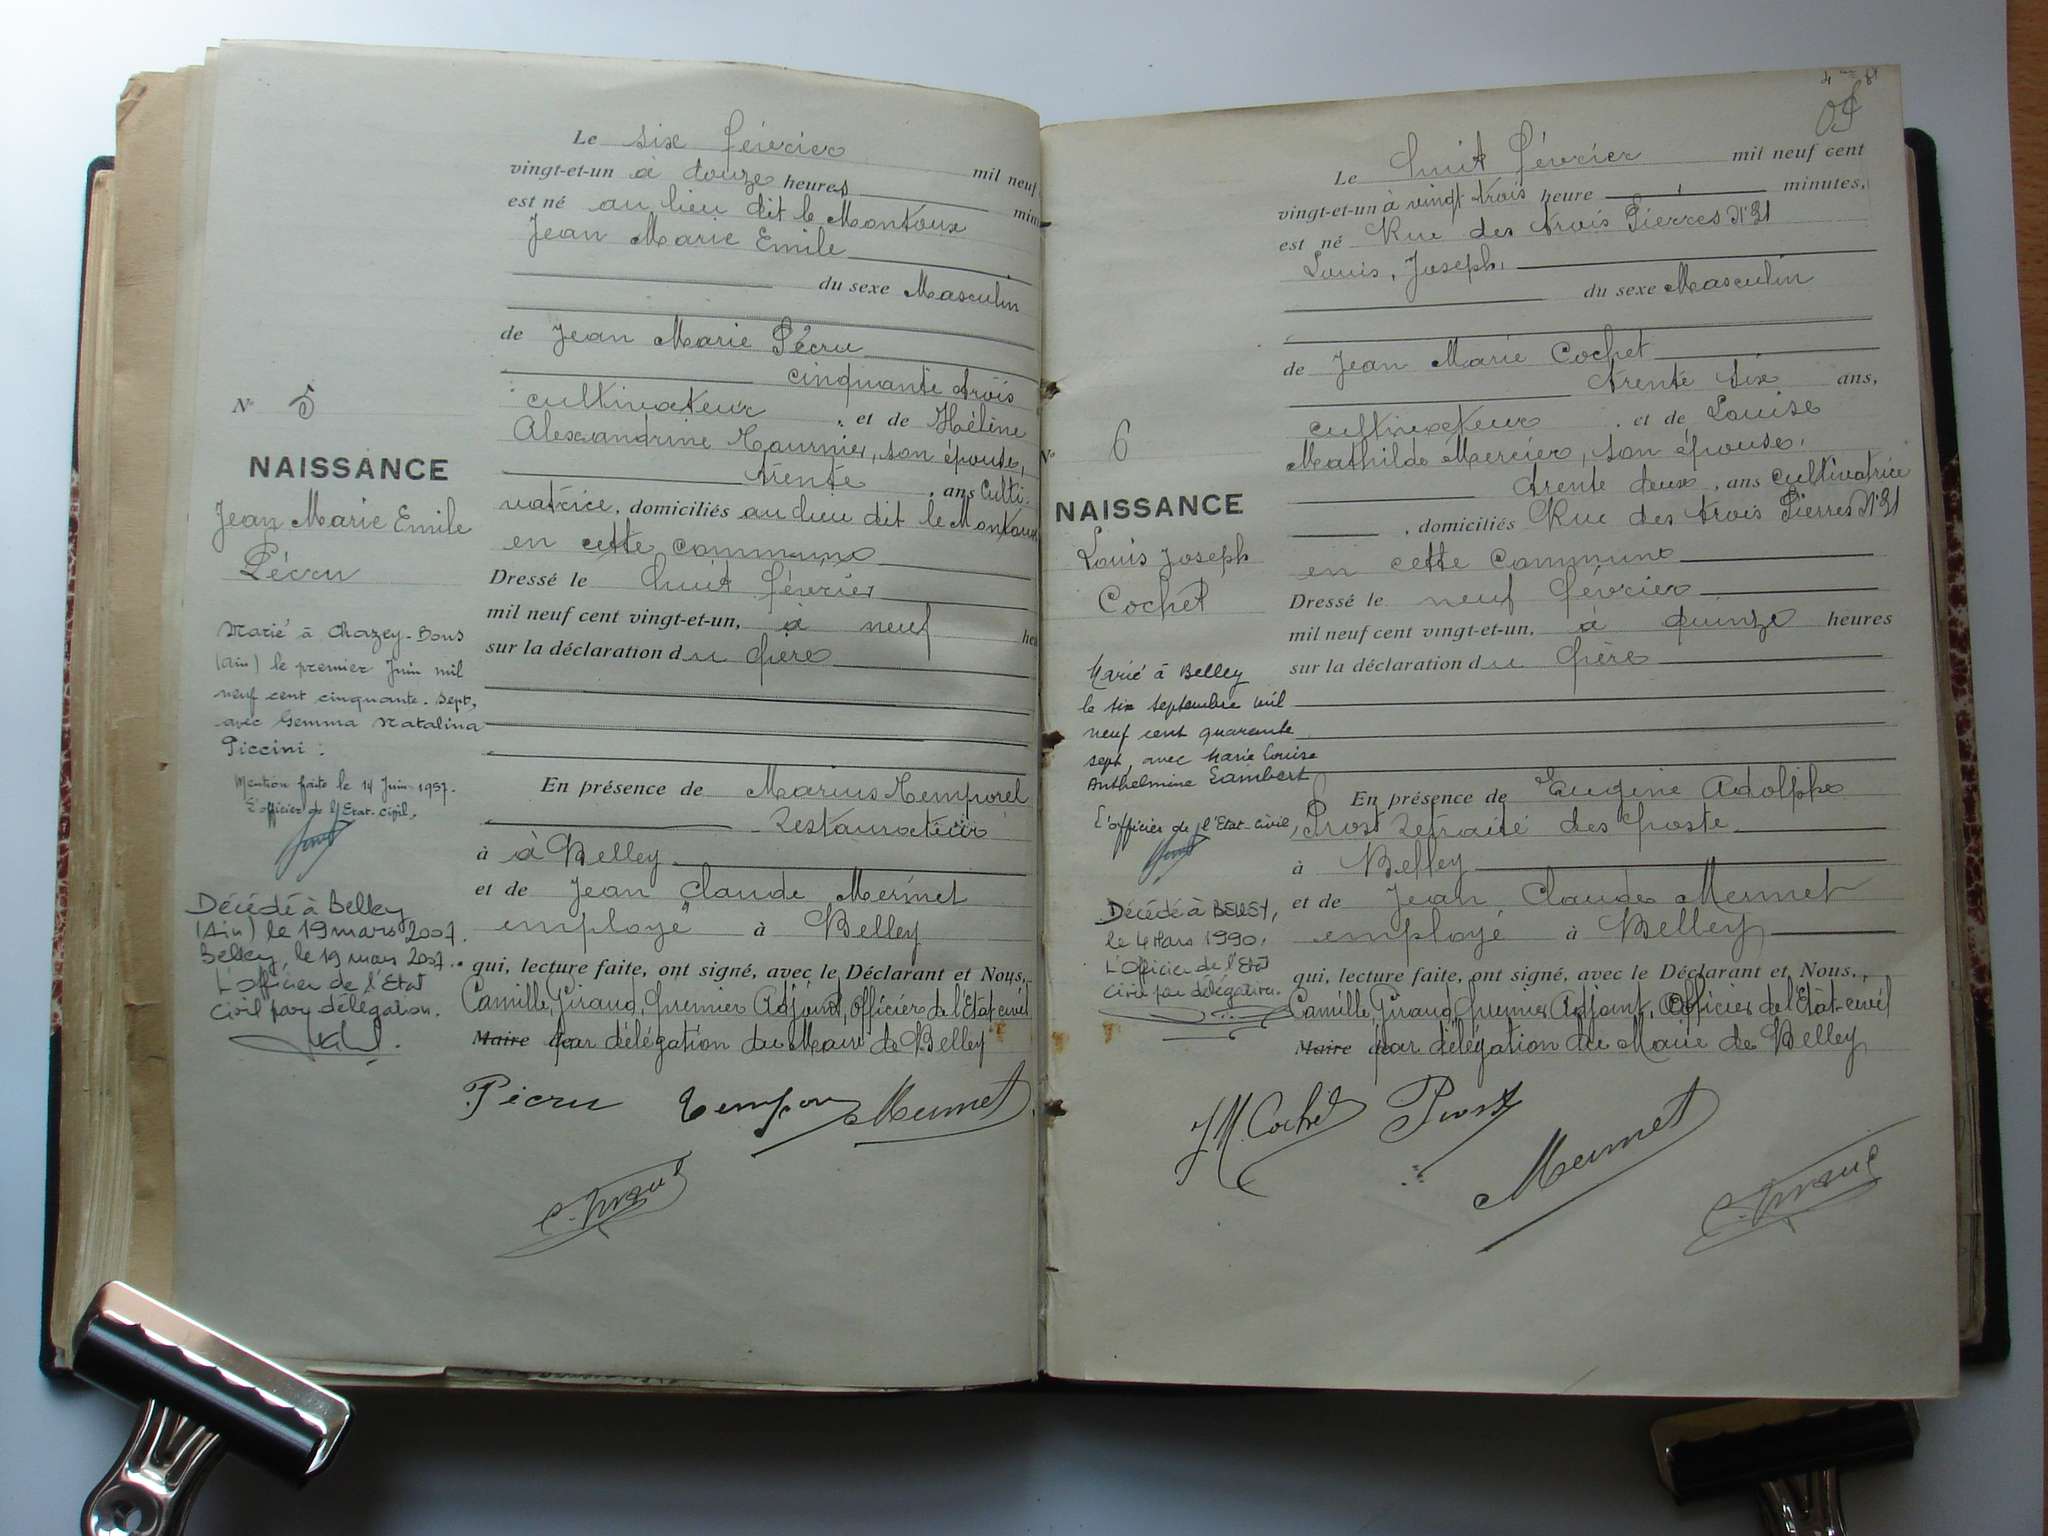 Le six février mil neuf
vingt-et-un à douze heures minu
est né au lieu dit le Montoux
Jean Marie Emile
du sexe Masculin
de Jean Marie Pécru
cinquante trois
cultivateur, et de Hélène
Alexandrine Tournier, son épouse,
trente, ans Culti-
vatrice, domiciliés au lieu dit le Montoux
en cette commune
Dressé le huit février
mil neuf cent vingt-et-un, à neuf heu
sur la déclaration du père
En présence de Marius Temporel
Restaurateur
à à Belley
et de Jean Claude Mermet
employé à Belley
qui, lecture faite, ont signé, avec le Déclarant et Nous,
Camille Giraud, premier Adjoint, Officier de l'Etat-civil
Maire par délégation du Maire de Belley
Pécru Mermet
N° 5
NAISSANCE
Jean Marie Emile
Pécru
Marié à Chazey-Bons
(Ain) le premier Juin mil
neuf cent cinquante-sept,
avec Gemma Natalina
Piccini.
Mention faite le 14 Juin 1957.
L'officier de l'Etat-civil,
Décédé à Belley
(Ain) le 19 mars 2007.
Belley, le 19 mars 2007.
L'Officier de l'Etat
Civil par délégation.
Le huit février mil neuf cent
vingt-et-un à vingt trois heure minutes,
est né Rue des trois Pierres N°31
Louis, Joseph,
du sexe Masculin
de Jean Marie Cochet
trente six ans,
cultivateur, et de Louise
Mathilde Mercier, son épouse,
trente deux, ans cultivatrice
, domiciliés Rue des trois Pierres N°31
en cette commune
Dressé le neuf février
mil neuf cent vingt-et-un, à quinze heures
sur la déclaration du père
En présence de Eugène Adolphe
Prost Retraité des poste
à Belley
et de Jean Claude Mermet
employé à Belley
qui, lecture faite, ont signé, avec le Déclarant et Nous,
Camille Giraud, premier Adjoint, Officier de l'Etat-civil
Maire par délégation du Maire de Belley
JM Cochet Prost
Mermet
N° 6
NAISSANCE
Louis Joseph
Cochet
Marié à Belley
le six septembre mil
neuf cent quarante
sept, avec Marie Louise
Anthelmine Lambert
L'officier de l'Etat-civil,
Décédé à BELLEY,
le 4 Mars 1990.
L'Officier de l'Etat
Civil par délégation.